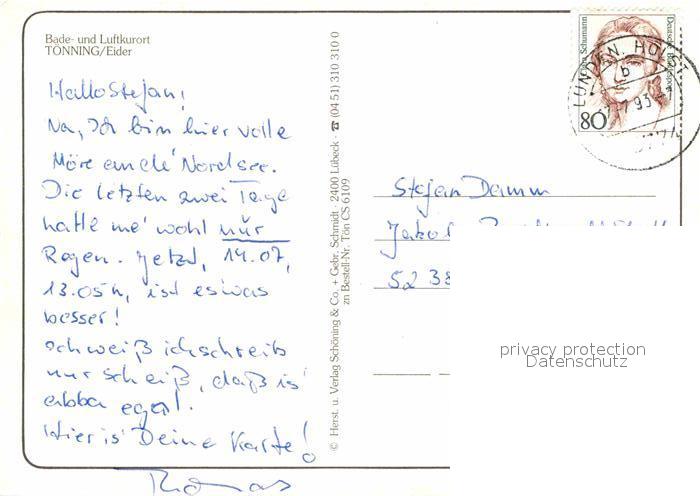 Bade- und Luftkurort
TÖNNING/Eider
Hallo Stefan!
Na, Ich bin hier volle
Möre an de' Nordsee.
Die letzten zwei Tage
hatte me' wohl nur
Regen. Jetzt, 14.07,
13.05h, ist es was
besser!
Ich weiß ich schreib
nur scheiß, daß is'
abba egal.
Hier is' Deine Karte!
Thomas
© Herst. u. Verlag Schöning & Co. + Gebr. Schmidt · 2400 Lübeck · ☎ (04 51) 310 310 0
zu Bestell-Nr. Tön CS 6109
Schumann
Deutsche Bundespost
80
LUNDEN, HOLST
b
7.93
Stefan Damm
Jakob
52 38
privacy protection
Datenschutz